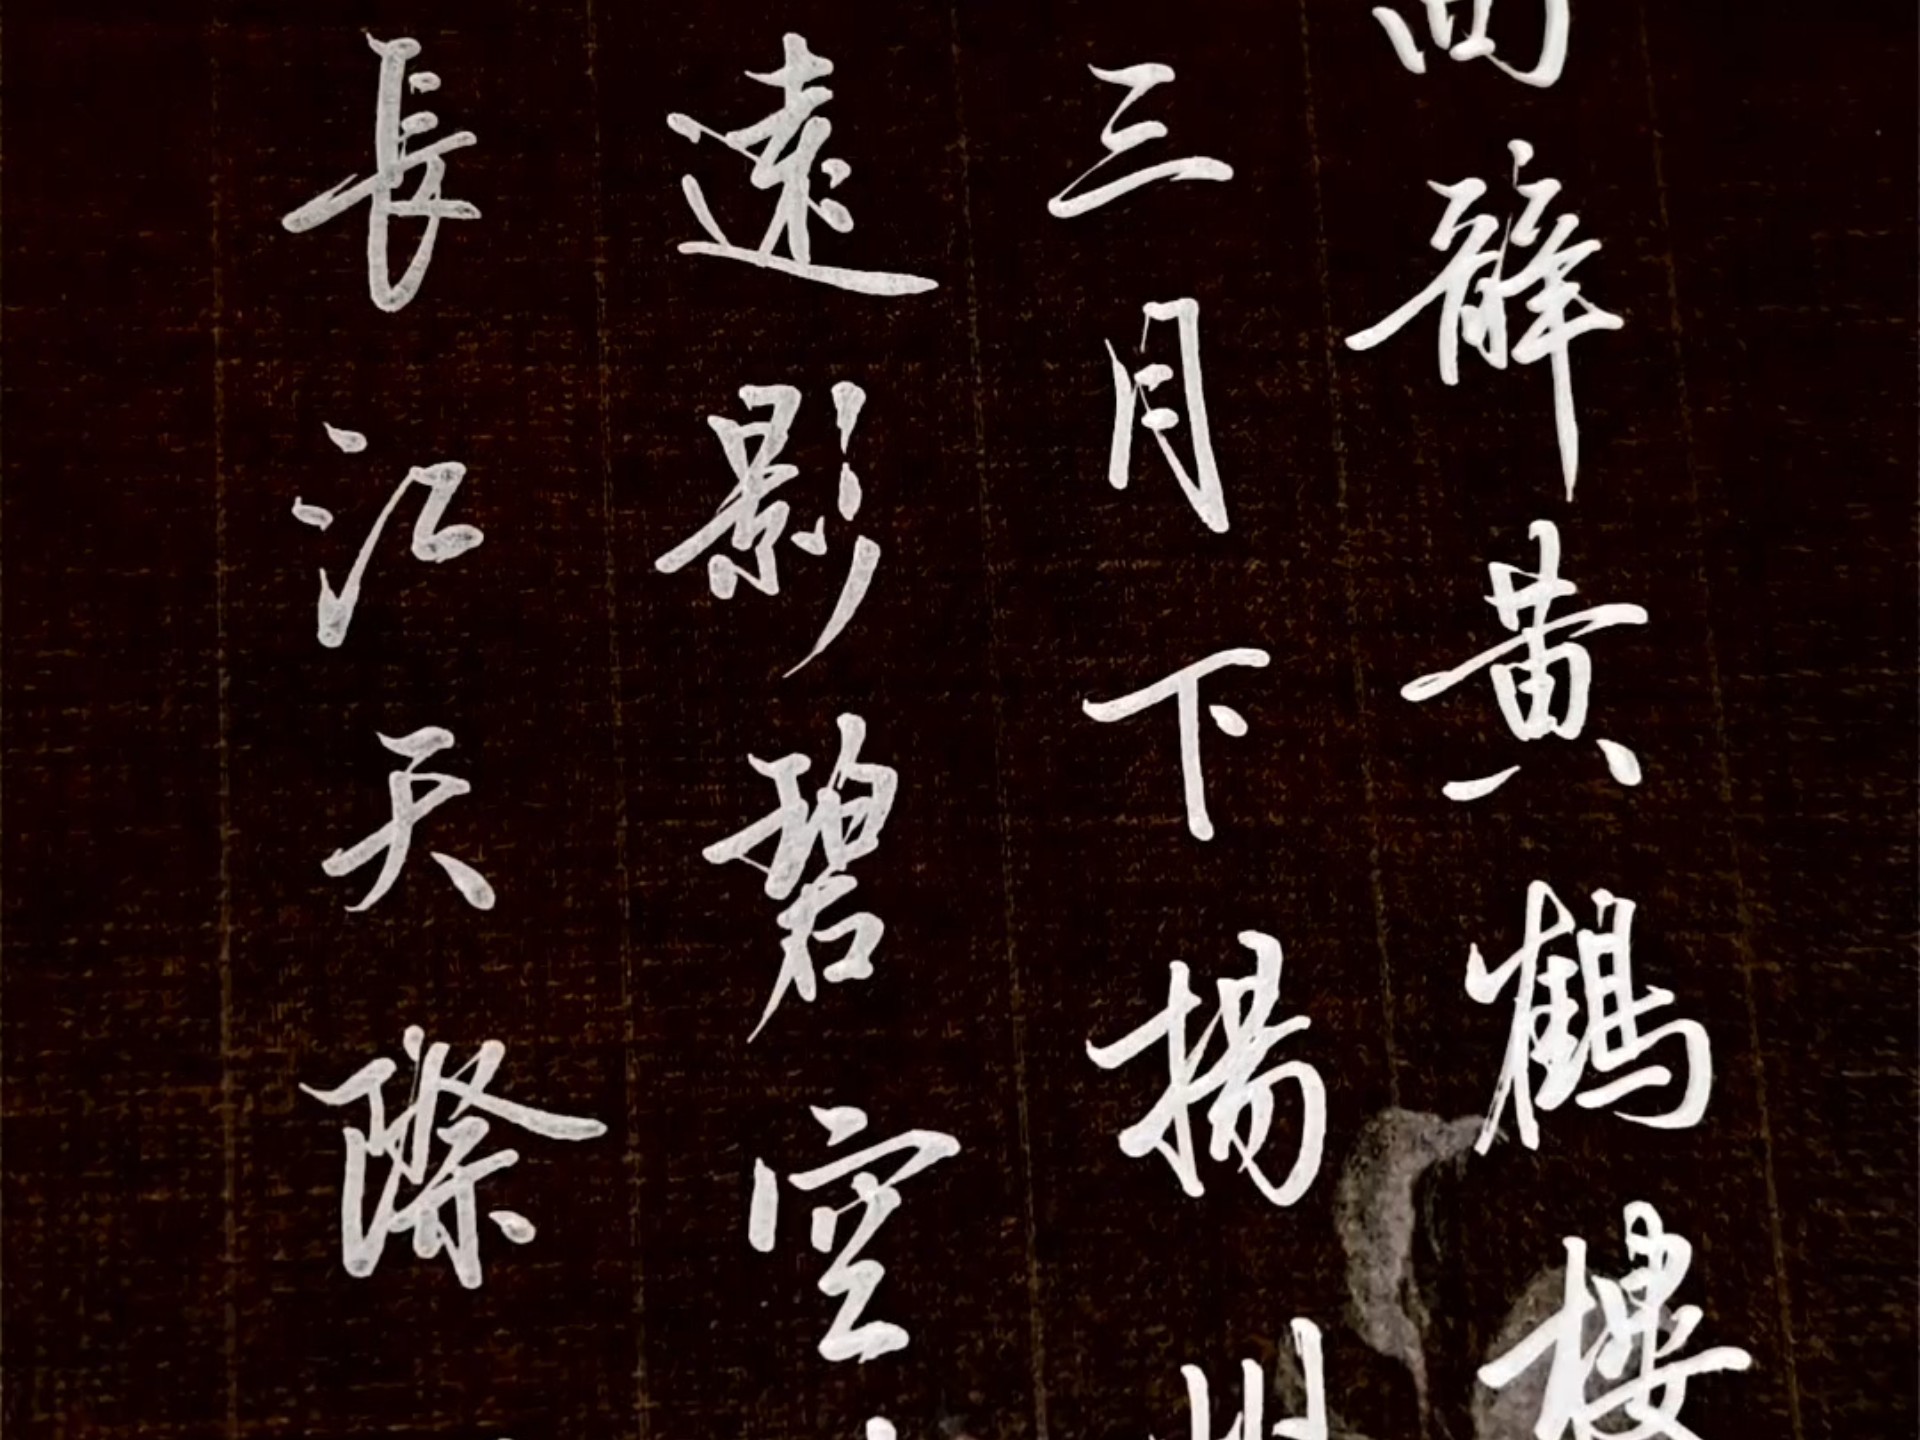 西辭黃鶴樓
三月下揚州
遠影碧空
長江天際